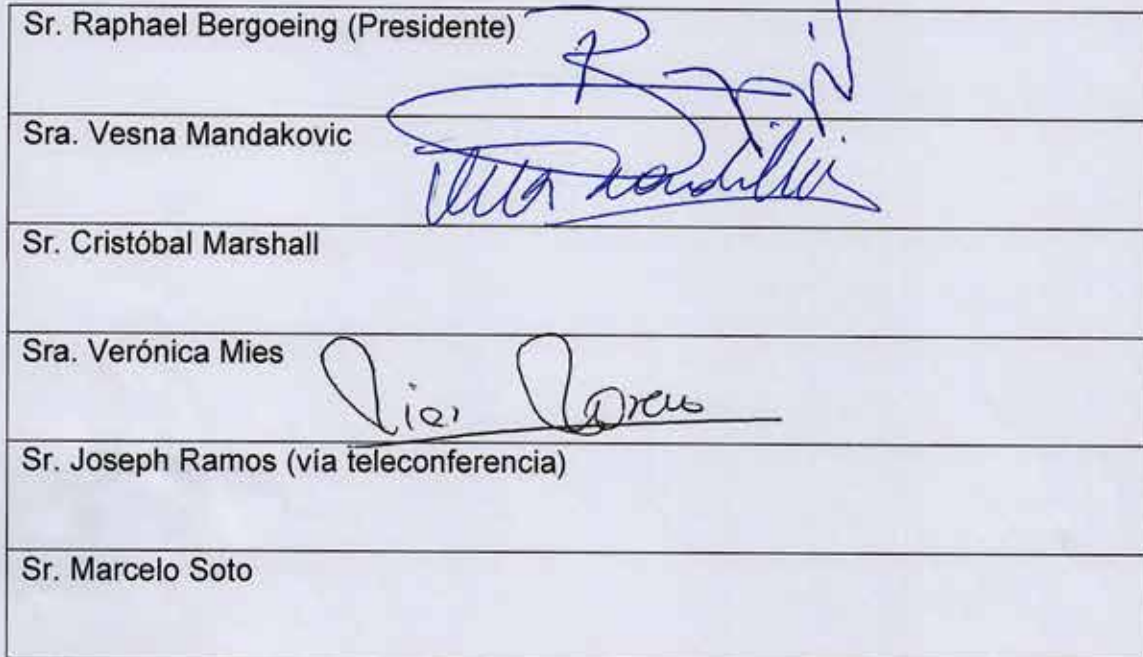 Sr. Raphael Bergoeing (Presidente)
Sra. Vesna Mandakovic
Sr. Cristóbal Marshall
Sra. Verónica Mies
Sr. Joseph Ramos (vía teleconferencia)
Sr. Marcelo Soto